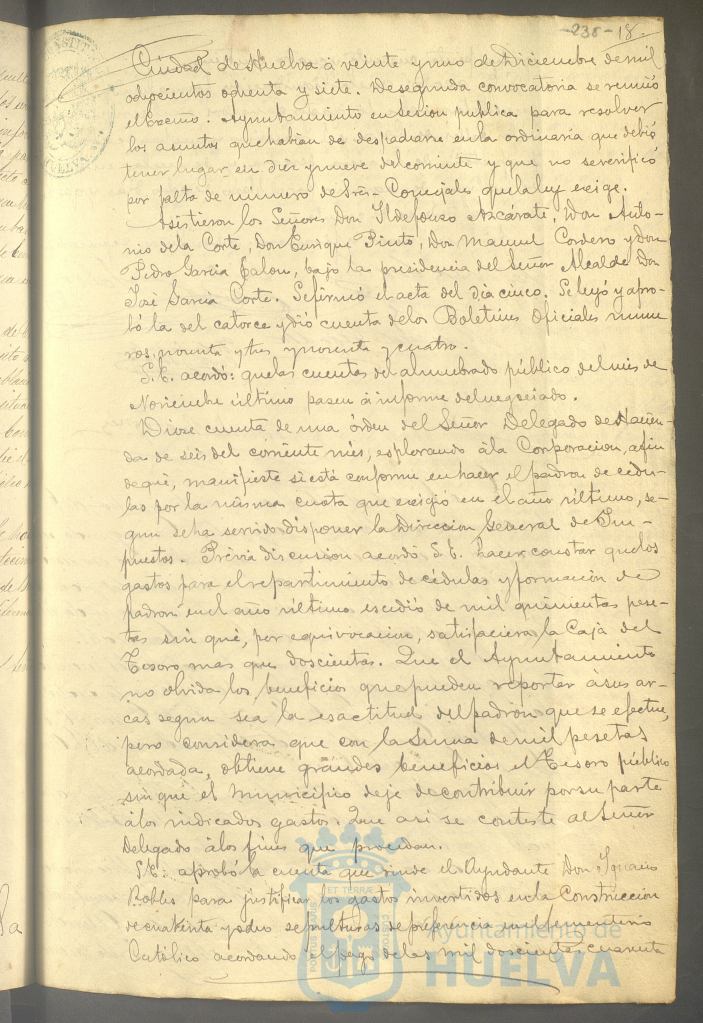 -236- 18.
Ciudad de Huelva á veinte y uno de Diciembre de mil
ochocientos ochenta y siete. De segunda convocatoria se reunió
el Excmo. Ayuntamiento en sesion publica para resolver
los asuntos que habian de despacharse en la ordinaria que debió
tener lugar en diez y nueve del corriente y que no se verificó
por falta de número de Sres. Concejales que la ley exige.
Asistieron los Señores Don Ildefonso Azcárate, Don Anto-
nio de la Corte, Don Enrique Pinto, Don Manuel Cordero y Don
Pedro Garcia Jalon, bajo la presidencia del Señor Alcalde Don
José Garcia Corte. Se firmó el acta del dia cinco. Se leyó y apro-
bó la del catorce y dió cuenta de los Boletines Oficiales núme
ros noventa y tres y noventa y cuatro.
S.E. acordó: que las cuentas del alumbrado público del mes de
Noviembre último pasen á informe del negociado.
Diose cuenta de una órden del Señor Delegado de Hacien-
da de seis del corriente mes, esplorando á la Corporacion, a fin
de que, manifieste si está conforme en hacer el padron de cédu-
las por la misma cuota que exigió en el año último, se-
gun se ha servido disponer la Direccion General de Im-
puestos. Prévia discusion acordó S.E. hacer constar que los
gastos para el repartimiento de cédulas y formacion de
padron en el año último escedió de mil quinientas pese-
tas sin que, por equivocacion, satisfaciera la Caja del
Tesoro, mas que doscientas. Que el Ayuntamiento
no olvida los beneficios que pueden reportar á sus ar-
cas segun sea la esactitud del padron que se efectue,
pero considera que con la suma de mil pesetas
acordada, obtiene grandes beneficios el Tesoro público
sin que el Municipio deje de contribuir por su parte
á los indicados gastos. Que asi se conteste al Señor
Delegado á los fines que procedan.
S.E. aprobó la cuenta que rinde el Ayudante Don Ignacio
Robles para justificar los gastos invertidos en la Construccion
de cuarenta y ocho sepulturas de preferencia en el Cementerio
Católico acordando el pago de las mil doscientas cuarenta
Ayuntamiento de
HUELVA